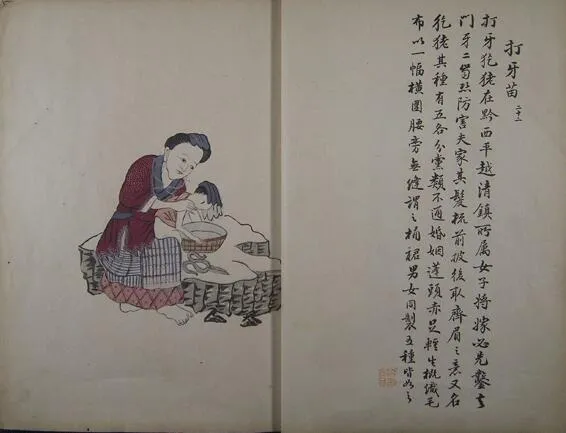 打牙苗 二十一
打牙犵狫在黔西平越清鎮所属女子将嫁必先鑿去
门牙二齒恐防害夫家其髮梳前披後取齊眉之意又名
犵狫其種有五各分黨類不通婚姻蓬頭赤足輕生概織毛
布以一幅橫圍腰旁無縫謂之桶裙男女同製五種皆如之